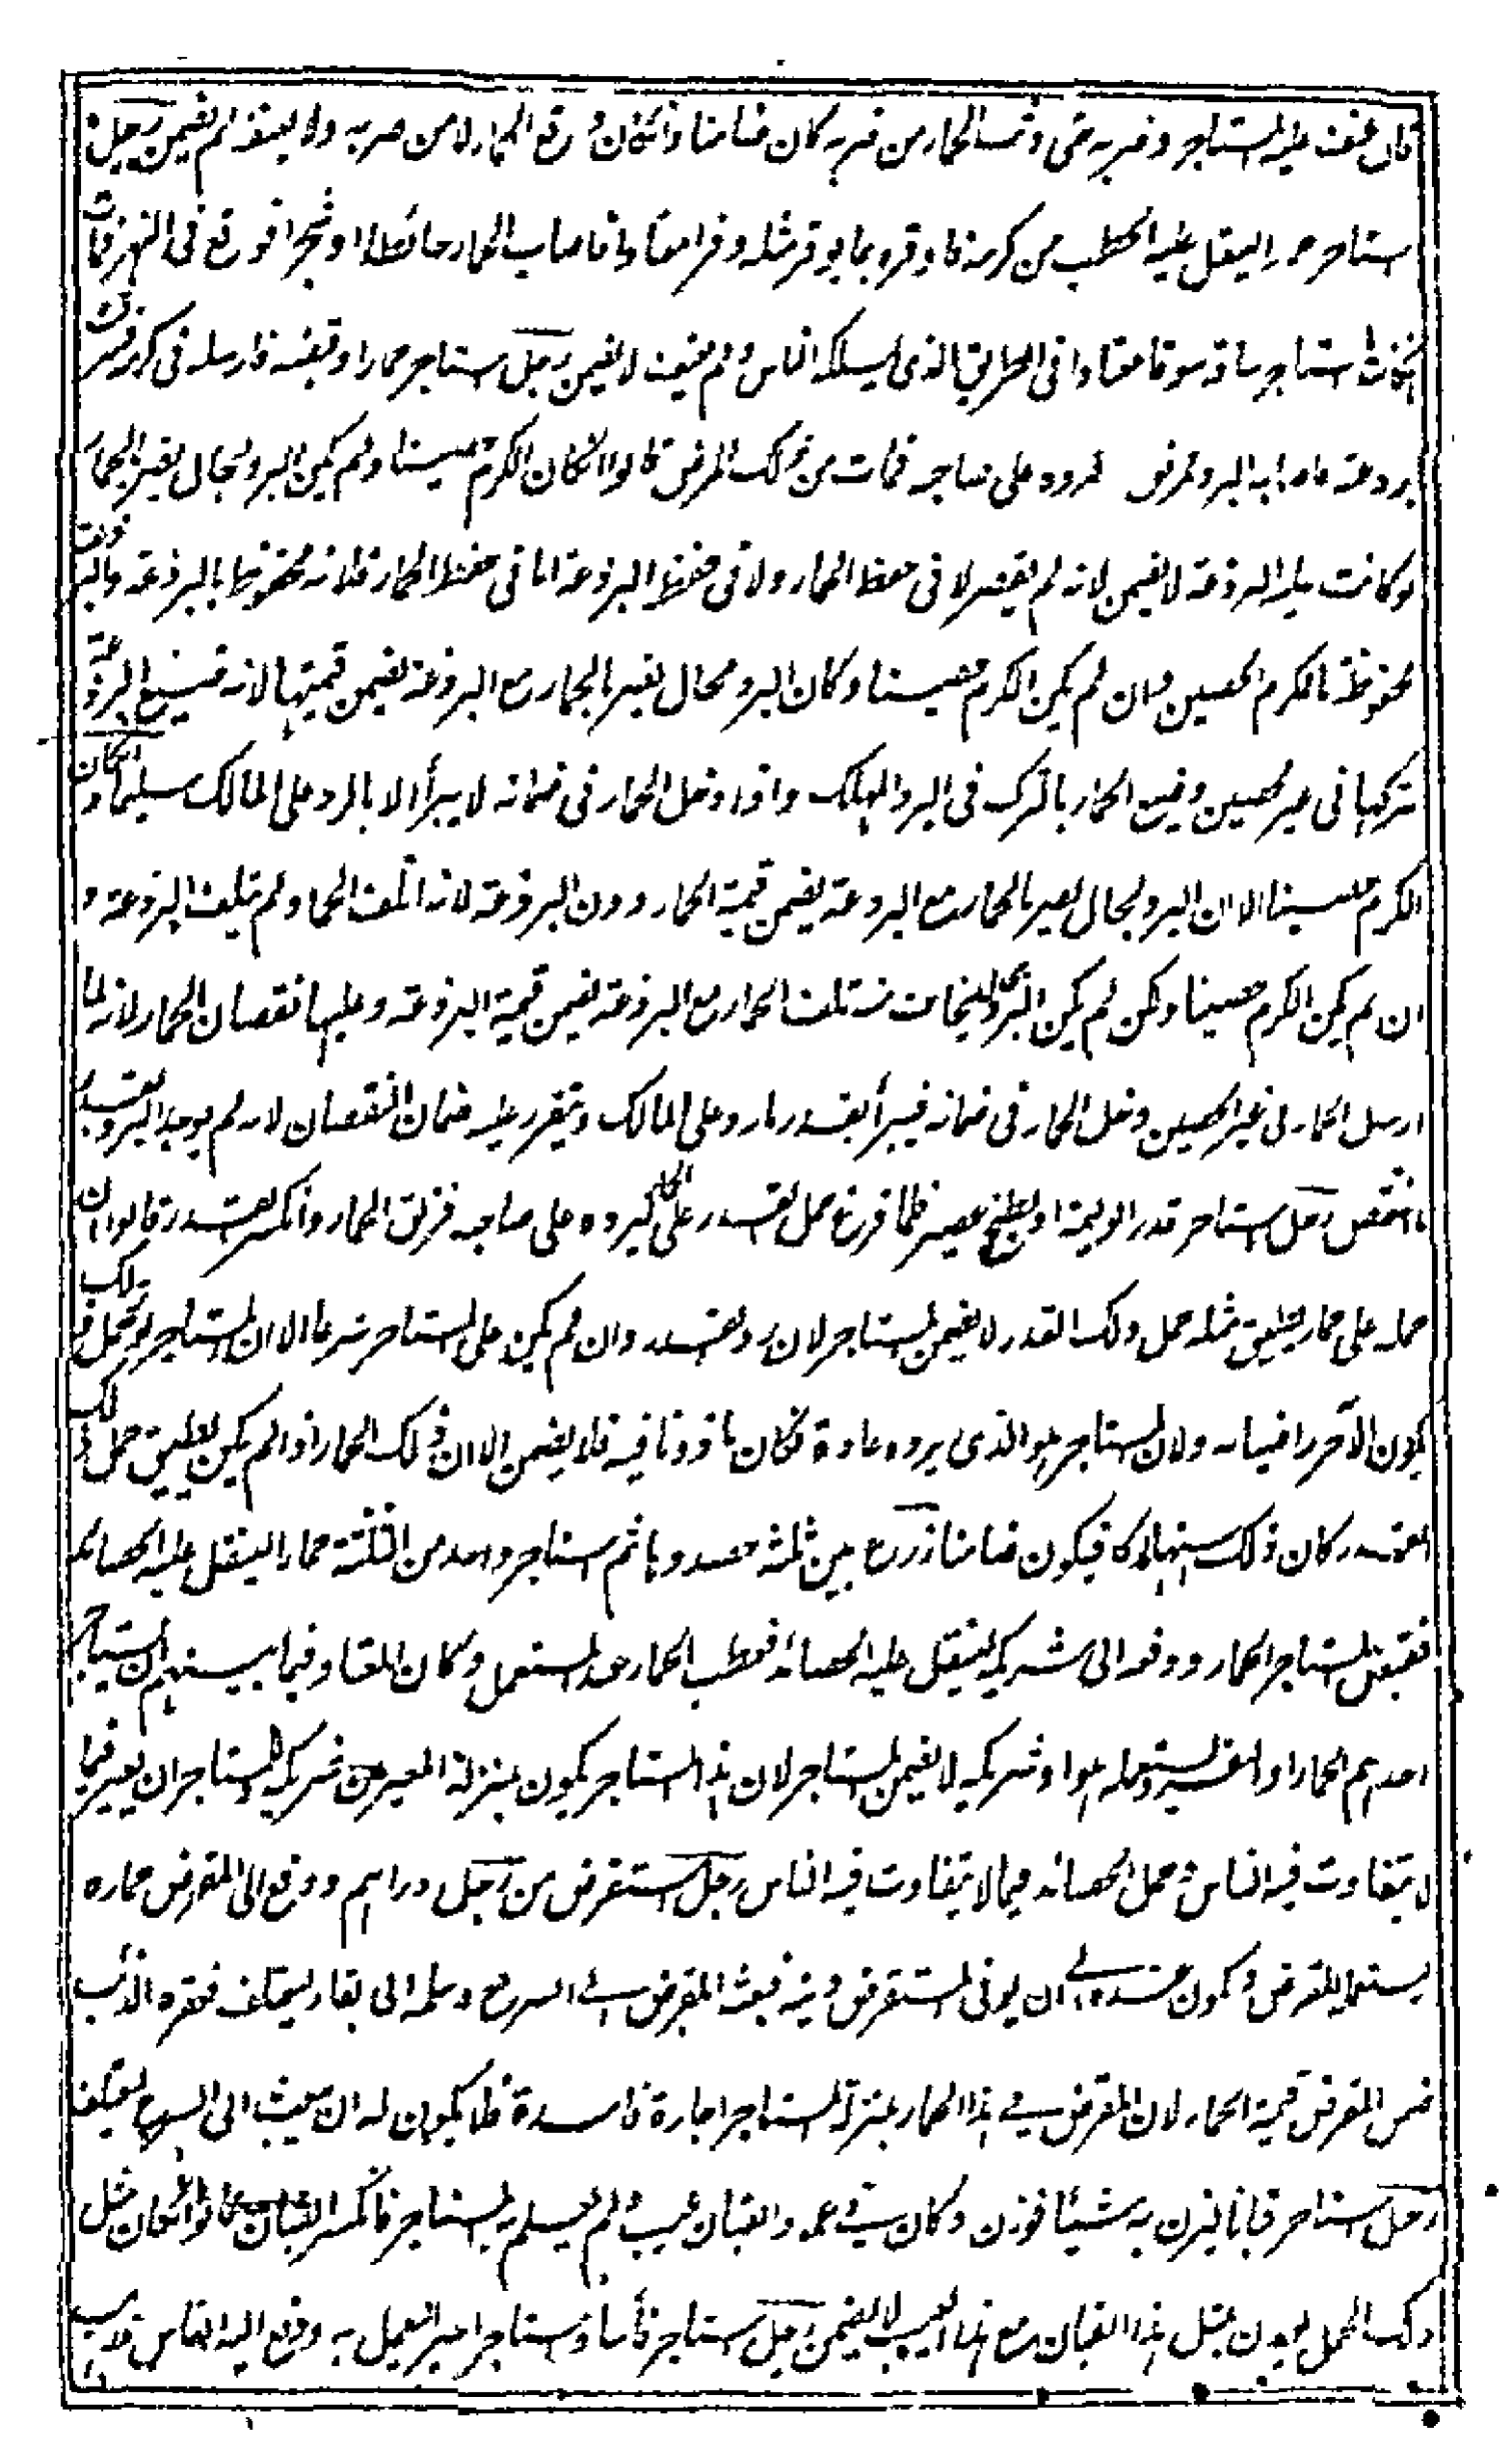 كان عنف عليه المستاجر وضربه حتى وقع الحمار من ضربه كان ضامنا وان كان وقع الحمار لا من ضربه ولا بعنفه لم يضمن رجل
استاجر حمارا لينقل عليه الحطب من كرمه فاوقره بما يوقر مثله وقرا معتادا فاصاب الحمار حائطا او شجرا فوقع فى النهر فمات
ان كان المستاجر ساقه سوقا معتادا فى الطريق الذى يسلكه الناس ولم يعنف لا يضمن رجل استاجر حمارا وقبضه فارسله فى كرمه فسرقت
برذعته فاصابه البرد فمرض فرده على صاحبه فمات من ذلك المرض قالوا ان كان الكرم حصينا ولم يكن البرد بحال يضر بالحمار
لو كانت عليه البرذعة لا يضمن لانه لم يقصر لا فى حفظ الحمار ولا فى حفظ البرذعة اما فى حفظ الحمار فلانه محفوظ بالبرذعة والبرذعة
محفوظة بالكرم الحصين وان لم يكن الكرم حصينا وكان البرد بحال يضر بالحمار مع البرذعة يضمن قيمتها لانه ضيع البرذعة
بتركها فى غير الحصين وضيع الحمار بالترك فى البرد المهلك واذا دخل الحمار فى ضمانه لا يبرأ الا بالرد على المالك سليما وان كان
الكرم حصينا الا ان البرد بحال يضر بالحمار مع البرذعة يضمن قيمة الحمار دون البرذعة لانه اتلف الحمار ولم يتلف البرذعة و
ان لم يكن الكرم حصينا ولكن لم يكن البرد بحال يتلف الحمار مع البرذعة يضمن قيمة البرذعة وعليها نقصان الحمار لانه لما
ارسل الحمار فى غير الحصين دخل الحمار فى ضمانه فيبرأ بقدر ما رد على المالك ويتقرر عليه ضمان النقصان لانه لم يوجد الرد بقدر
ما انتقص رجل استاجر قدرا لوليمة او لطبخ عصير فلما فرغ حمل القدر على الحمار ليرده على صاحبه فزلق الحمار وانكسر القدر قالوا ان
حمله على حمار يطيق مثله حمل ذلك القدر لا يضمن المستاجر لان رد القدر وان لم يكن على المستاجر شرعا الا ان المستاجر لو حمل ذلك
يكون الآجر راضيا به ولان المستاجر هو الذى يرده عادة فكان ماذونا فيه فلا يضمن الا ان ذلك الحمار اذا لم يكن يطيق حمل ذلك
القدر كان ذلك استهلاكا فيكون ضامنا زرع بين ثلثة حصدوها ثم استاجر واحد من الثلثة حمارا لينقل عليه الحصائد
فقبض المستاجر الحمار ودفعه الى شريكه لينقل عليه الحصائد فعطب الحمار عند المستعمل وكان المعتاد فيما بينهم ان يستاجر
احدهم الحمار او البقر ويستعمله هو او شريكه لا يضمن المستاجر لان هذا المستاجر يكون بمنزلة المعير من شريكه وللمستاجر ان يعير فيما
لا يتفاوت فيه الناس وحمل الحصائد فيما لا يتفاوت فيه الناس رجل استقرض من رجل دراهم ودفع الى المقرض حماره
ليستعمله المقرض ويكون عنده الى ان يوفى المستقرض دينه فبعث المقرض الى السرح وسلمه الى بقار ليعتلف فعقره الذئب
ضمن المقرض قيمة الحمار لان المقرض فى هذا الحمار بمنزلة المستاجر اجارة فاسدة فلا يكون له ان يبعث الى السرح ليعتلف
رجل استاجر قبانا ليزن به شيئا فوزن وكان فى عمود القبان عيب ولم يعلم به المستاجر فانكسر القبان قالوا ان كان مثل
ذلك الحمل يوزن بمثل هذا القبان مع هذا العيب لا يضمن رجل استاجر فأسا واستاجر اجيرا ليعمل به ودفع اليه الفاس فذهب